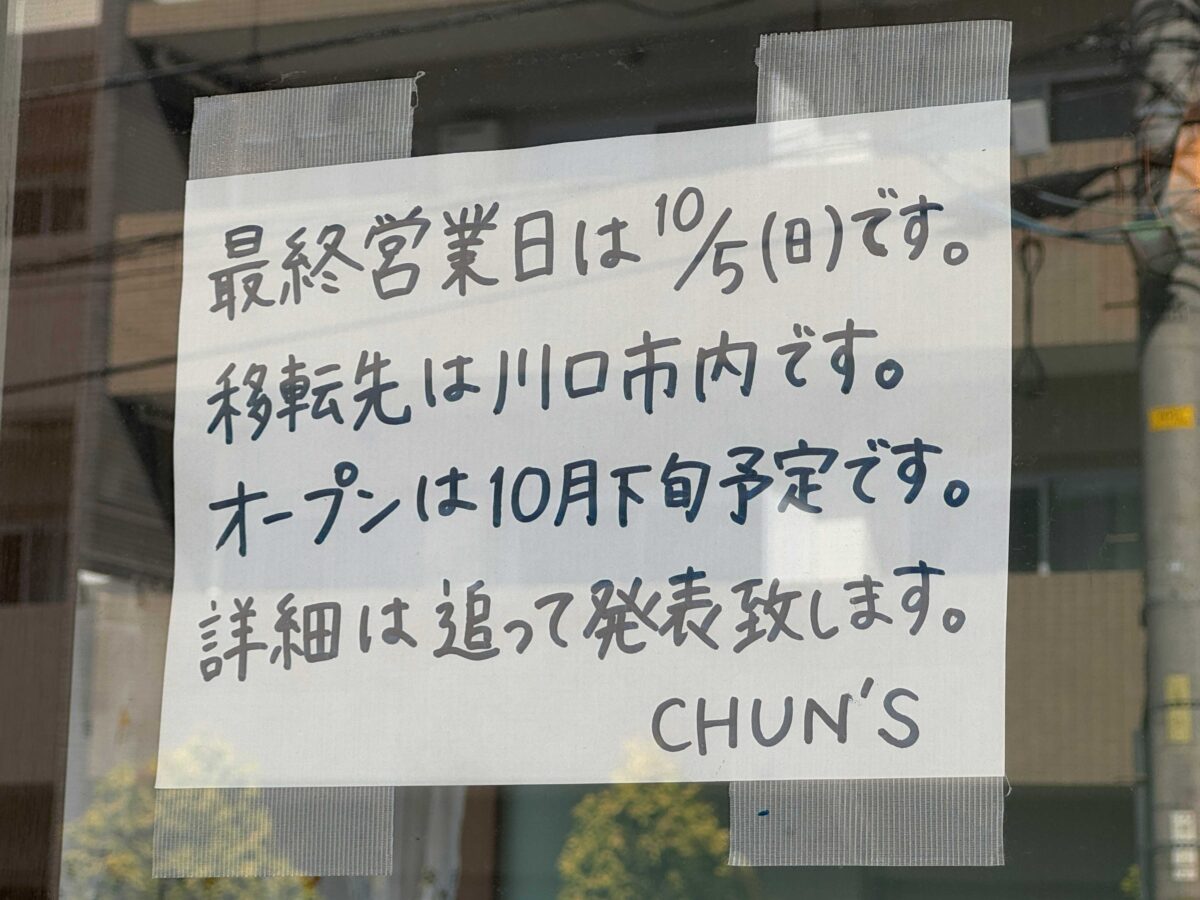 最終営業日は10/5(日)です。
移転先は川口市内です。
オープンは10月下旬予定です。
詳細は追って発表致します。
CHUN'S